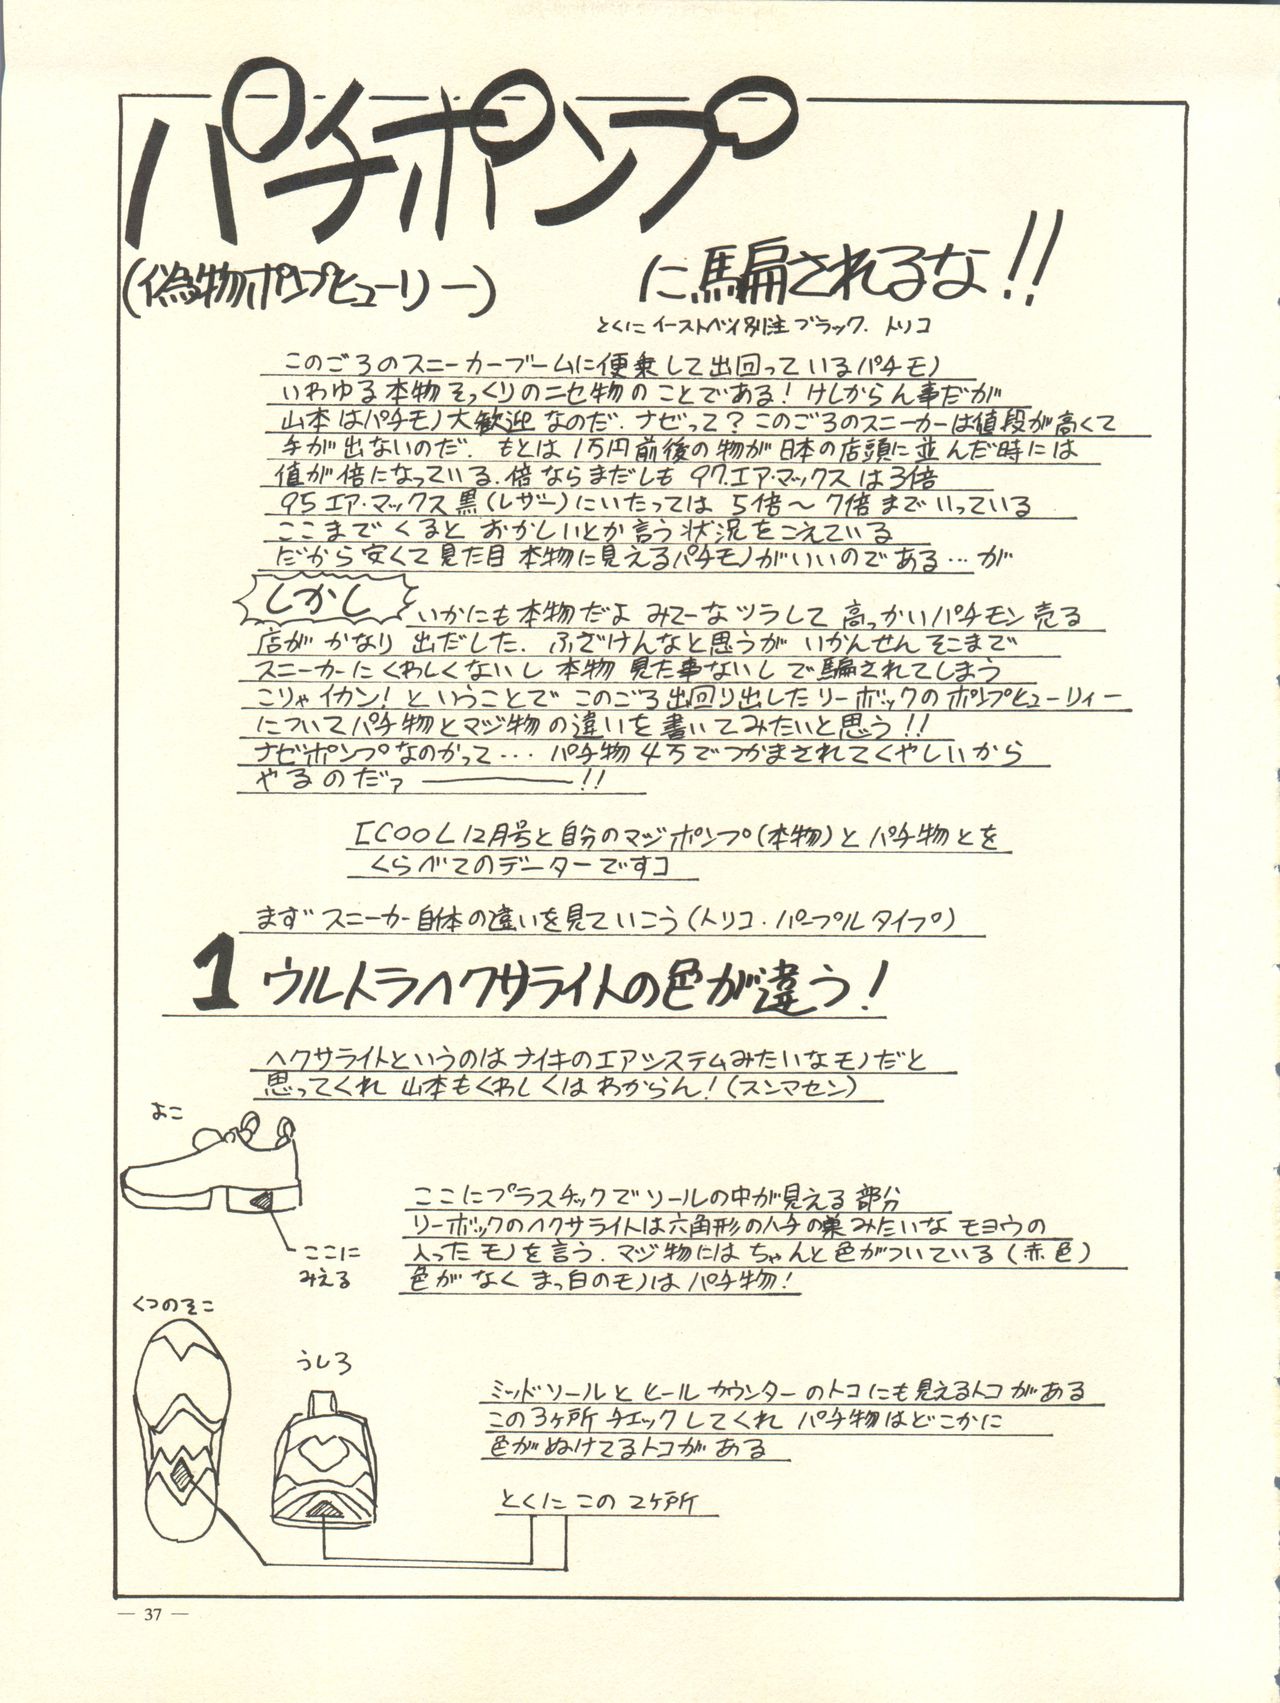 パチポンプ
(偽物ポンプヒューリー)
に騙されるな!!
とくに イーストベイ別注ブラック. トリコ
このごろのスニーカーブームに便乗して出回っているパチモノ
いわゆる本物そっくりのニセ物のことである! けしからん事だが
山本はパチモノ大歓迎なのだ. ナゼって? このごろのスニーカーは値段が高くて
手が出ないのだ. もとは1万円前後の物が日本の店頭に並んだ時には
値が倍になっている. 倍ならまだしも 97.エア・マックスは3倍
95エア・マックス黒(レザー)にいたっては 5倍~7倍までいっている
ここまでくると おかしいとか言う状況をこえている
だから安くて見た目本物に見えるパチモノがいいのである…が
しかし
いかにも本物だよ みてーなツラして 高っかいパチモン売る
店が かなり出だした. ふざけんなと思うが いかんせん そこまで
スニーカーにくわしくないし 本物見た事ないし で騙されてしまう
こりゃイカン! ということで このごろ出回り出したリーボックのポンプヒューリィー
についてパチ物とマジ物の違いを書いてみたいと思う!!
ナゼポンプなのかって… パチ物4万でつかまされてくやしいから
やるのだァ――――!!
[COOL12月号と自分のマジポンプ(本物)とパチ物とを
くらべてのデーターですコ
まずスニーカー自体の違いを見ていこう(トリコ・パープルタイプ)
1 ウルトラヘクサライトの色が違う!
ヘクサライトというのはナイキのエアシステムみたいなモノだと
思ってくれ 山本もくわしくはわからん!(スンマセン)
よこ
ここに
みえる
ここにプラスチックでソールの中が見える部分
リーボックのヘクサライトは六角形のハチの巣みたいなモヨウの
入ったモノを言う. マジ物にはちゃんと色がついている(赤色)
色がなくまっ白のモノはパチ物!
くつのそこ
うしろ
ミッドソールとヒールカウンターのトコにも見えるトコがある
この3ヶ所チェックしてくれ パチ物はどこかに
色がぬけてるトコがある
とくにこの2ヶ所
― 37 ―